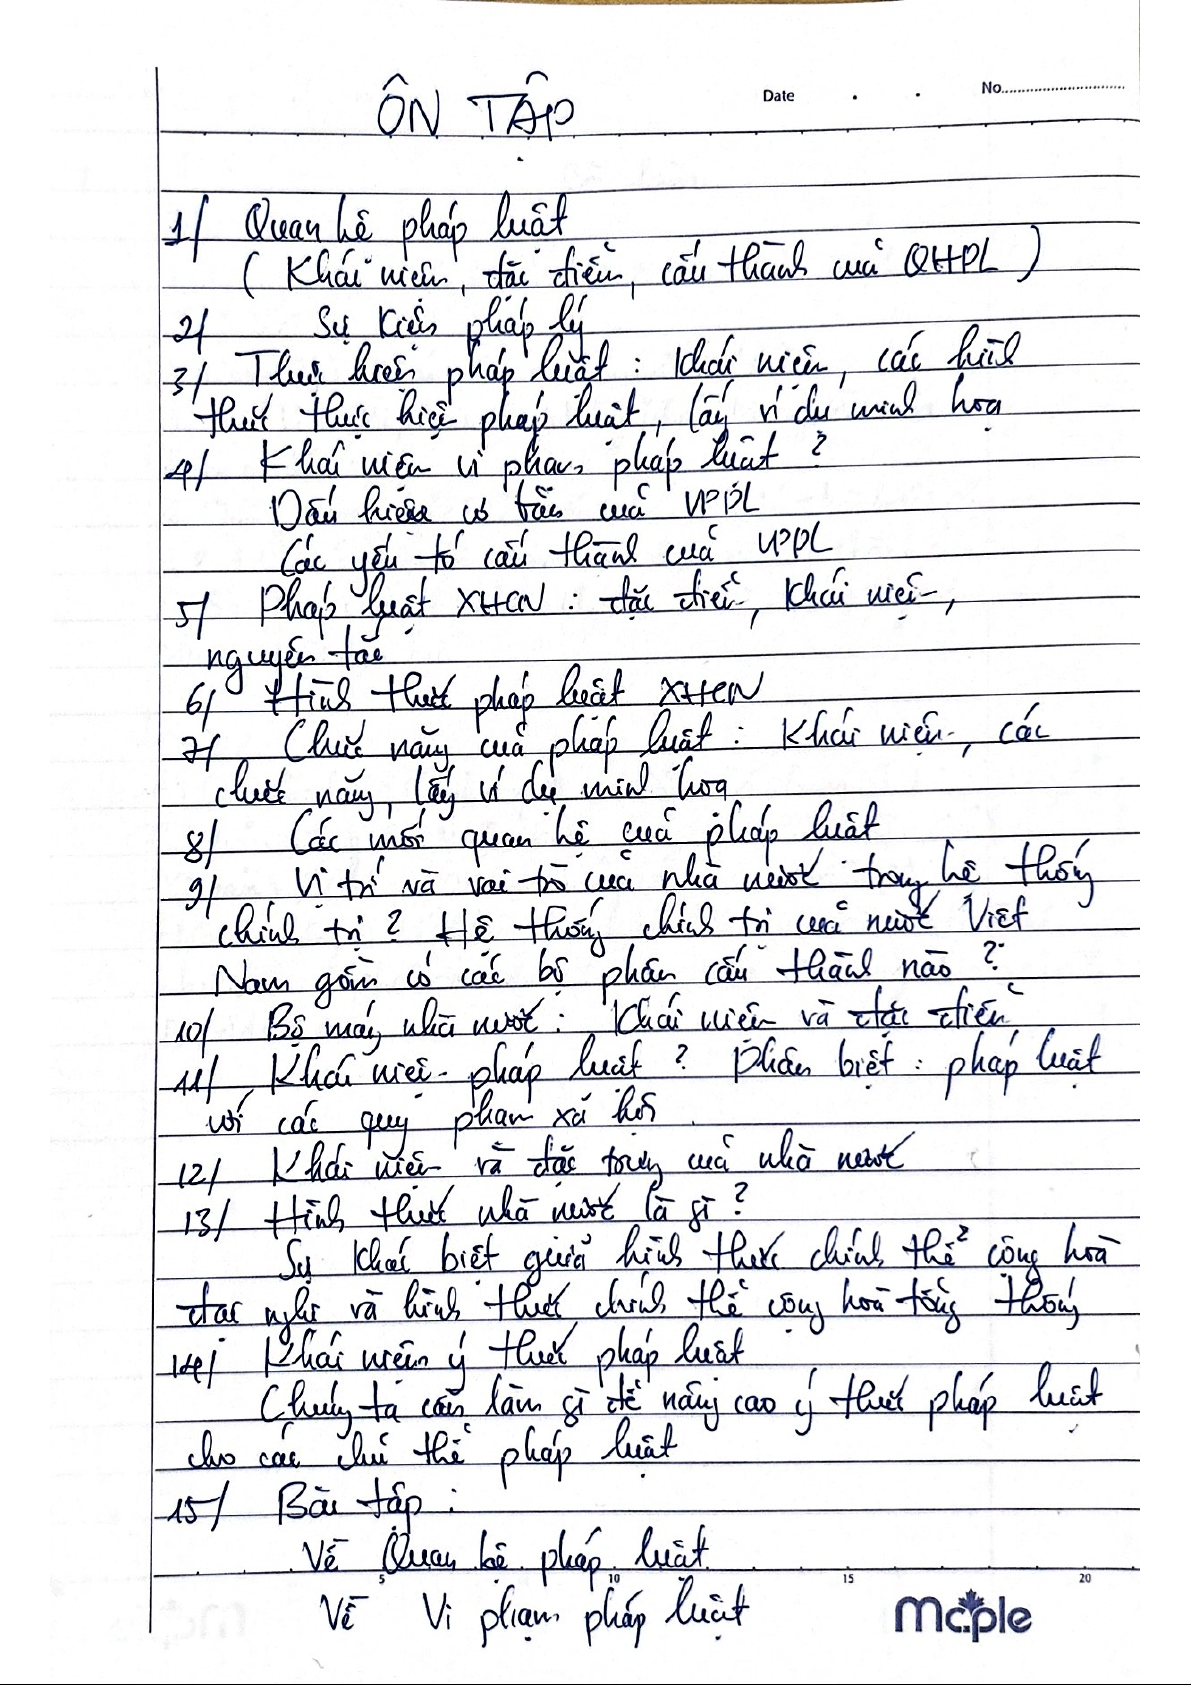 ÔN TẬP
Date . . No.
1/ Quan hệ pháp luật
( Khái niệm, đặc điểm, cấu thành của QHPL )
2/ Sự kiện pháp lý
3/ Thực hiện pháp luật : Khái niệm, các hình
thức thực hiện pháp luật, lấy ví dụ minh hoạ
4/ Khái niệm vi phạm pháp luật ?
Dấu hiệu cơ bản của VPPL
Các yếu tố cấu thành của VPPL
5/ Pháp luật XHCN : đặc điểm, khái niệm,
nguyên tắc
6/ Hình thức pháp luật XHCN
7/ Chức năng của pháp luật : Khái niệm, các
chức năng, lấy ví dụ minh hoạ
8/ Các mối quan hệ của pháp luật
9/ Vị trí và vai trò của nhà nước trong hệ thống
chính trị ? Hệ thống chính trị của nước Việt
Nam gồm có các bộ phận cấu thành nào ?
10/ Bộ máy nhà nước : Khái niệm và đặc điểm
11/ Khái niệm pháp luật ? Phân biệt : pháp luật
với các quy phạm xã hội
12/ Khái niệm và đặc trưng của nhà nước
13/ Hình thức nhà nước là gì ?
Sự khác biệt giữa hình thức chính thể cộng hoà
đại nghị và hình thức chính thể cộng hoà tổng thống
14/ Khái niệm ý thức pháp luật
Chúng ta cần làm gì để nâng cao ý thức pháp luật
cho các chủ thể pháp luật
15/ Bài tập :
Về Quan hệ pháp luật
5 10 15 20
Về Vi phạm pháp luật
Maple